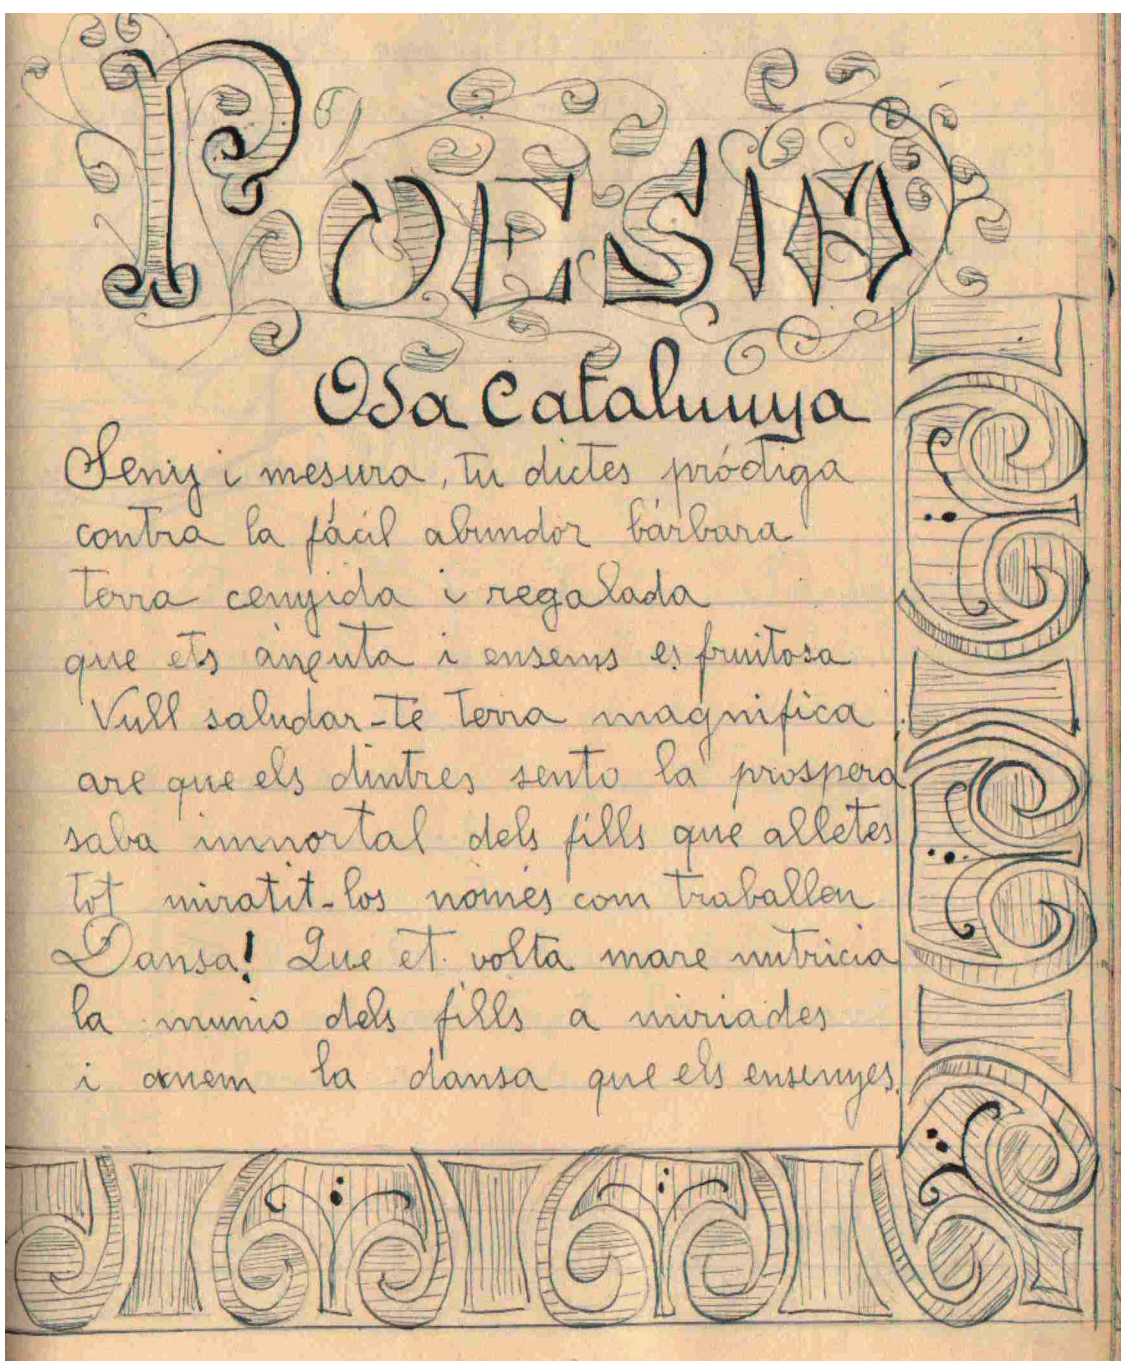 POESIA
Oda Catalunya
Seny i mesura, tu dictes pródiga
contra la fácil abundor bárbara
terra cenyida i regalada
que ets anguta i ensems es fruitosa
Vull saludar-te terra magnifica
are que els dintres sento la prospera
saba immortal dels fills que alletes
tot miratit-los només com traballen
Dansa! Que et volta mare nutricia
la munio dels fills a miriades
i anem la dansa que els ensenyes.